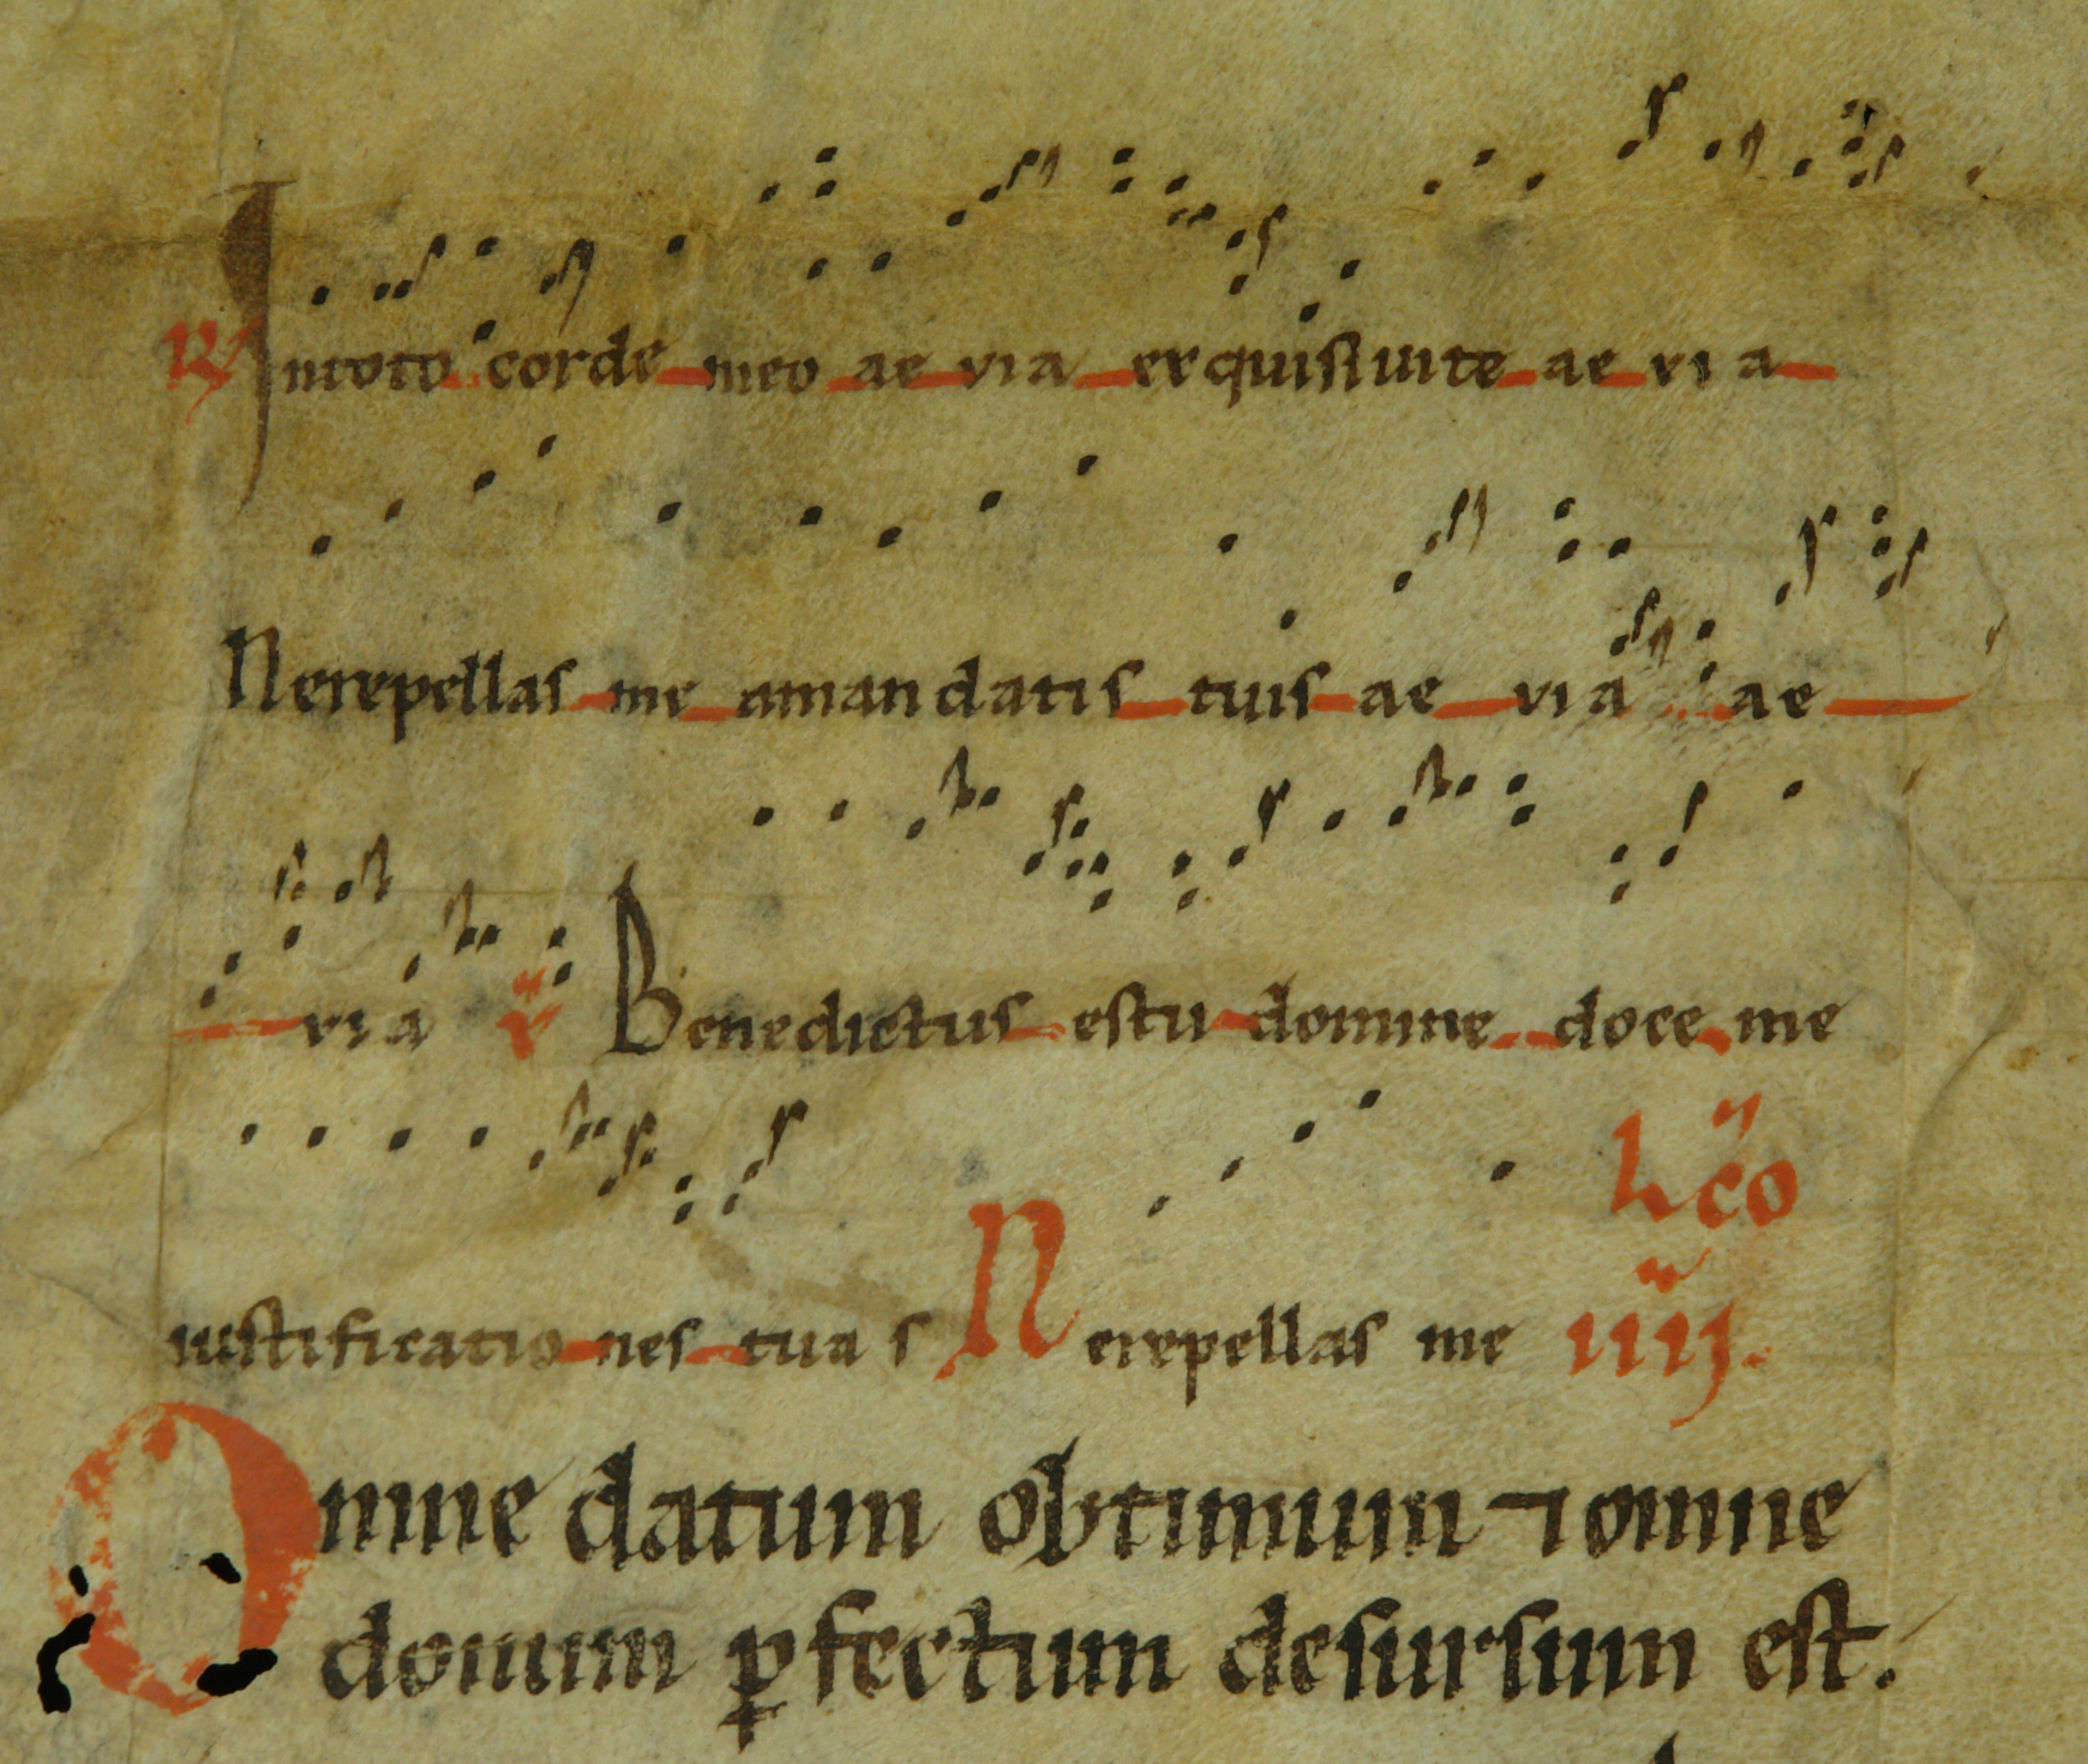 ℟ Intoto corde meo ae via exquisiuite ae via
Nerepellas me amandatis tuis ae via ae
via ℣ Benedictus estu domine doce me
iustificationes tuas Nerepellas me
lꝯ̃o
iiij.
Omne datum obtimum ⁊ omne
donum ꝑfectum desursum est.